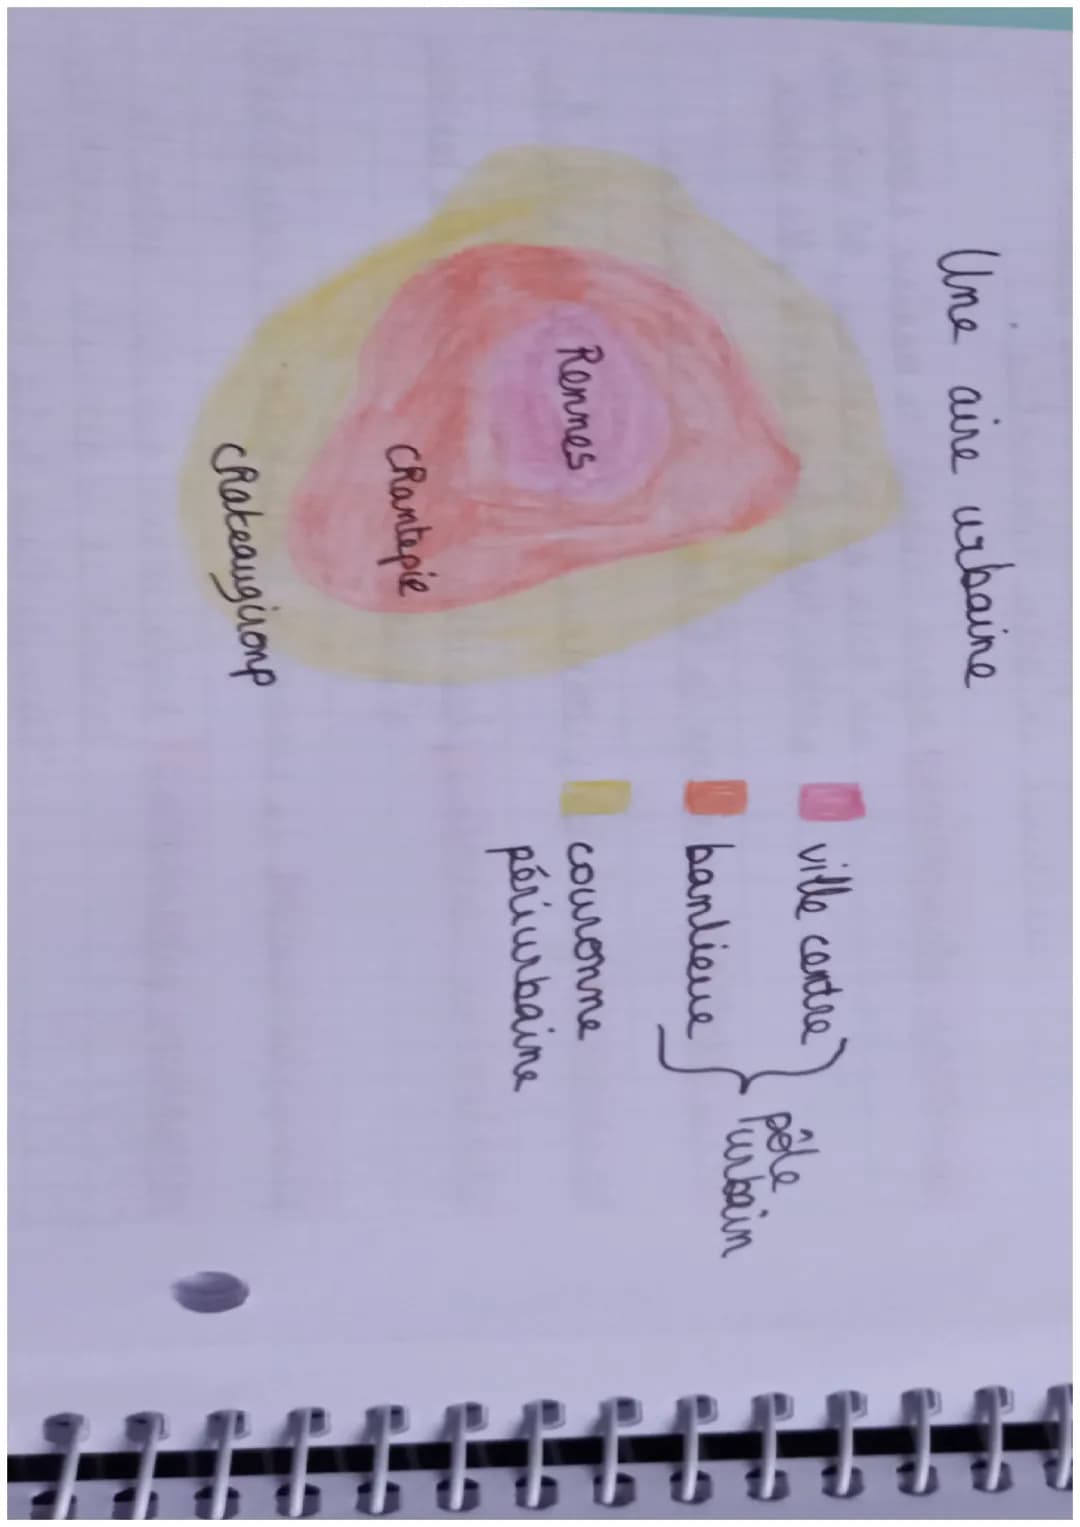 Une aire urbaine
Rennes
Chantepie
Chateaugironp
ville centre
banlieue
pôle
urbain
couronne
périurbaine